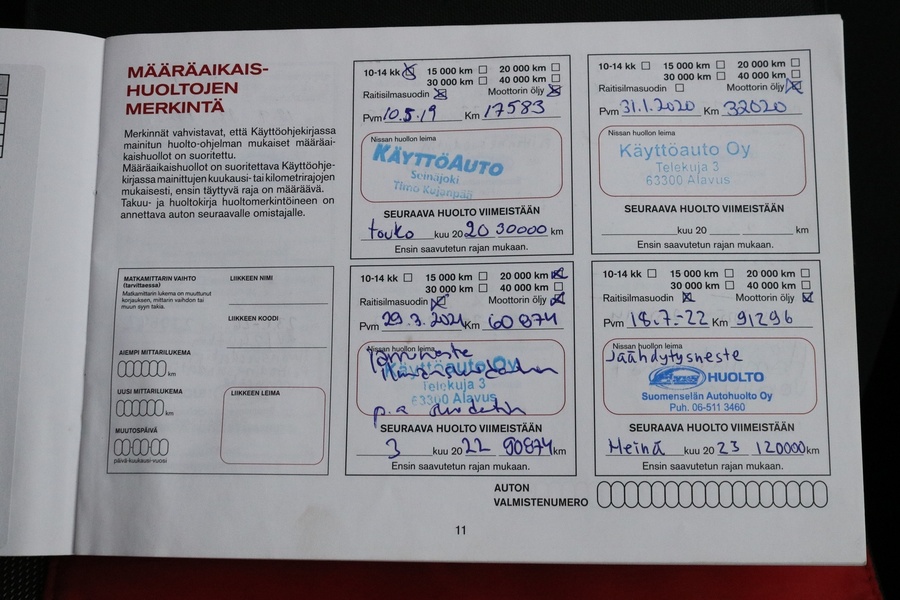 MÄÄRÄAIKAIS-
HUOLTOJEN
MERKINTÄ
Merkinnät vahvistavat, että Käyttöohjekirjassa
mainitun huolto-ohjelman mukaiset määräai-
kaishuollot on suoritettu.
Määräaikaishuollot on suoritettava Käyttöohje-
kirjassa mainittujen kuukausi- tai kilometrirajojen
mukaisesti, ensin täyttyvä raja on määräävä.
Takuu- ja huoltokirja huoltomerkintöineen on
annettava auton seuraavalle omistajalle.
10-14 kk 15 000 km 20 000 km
30 000 km 40 000 km
Raitisilmasuodin Moottorin öljy
Pvm 10.5.19 Km 17583
Nissan huollon leima
KÄYTTÖAUTO
Seinäjoki
Timo Kujanpää
SEURAAVA HUOLTO VIIMEISTÄÄN
touko kuu 2020 30000 km
Ensin saavutetun rajan mukaan.
10-14 kk 15 000 km 20 000 km
30 000 km 40 000 km
Raitisilmasuodin Moottorin öljy
Pvm 31.1.2020 Km 32020
Nissan huollon leima
Käyttöauto Oy
Telekuja 3
63300 Alavus
SEURAAVA HUOLTO VIIMEISTÄÄN
kuu 20 km
Ensin saavutetun rajan mukaan.
MATKAMITTARIN VAIHTO
(tarvittaessa)
Matkamittarin lukema on muuttunut
korjauksen, mittarin vaihdon tai
muun syyn takia.
AIEMPI MITTARILUKEMA
km
UUSI MITTARILUKEMA
km
MUUTOSPÄIVÄ
päivä-kuukausi-vuosi
LIIKKEEN NIMI
LIIKKEEN KOODI
LIIKKEEN LEIMA
10-14 kk 15 000 km 20 000 km
30 000 km 40 000 km
Raitisilmasuodin Moottorin öljy
Pvm 29.3.2021 Km 60874
Nissan huollon leima
Käyttöauto Oy
Telekuja 3
63300 Alavus
SEURAAVA HUOLTO VIIMEISTÄÄN
3 kuu 2022 90874 km
Ensin saavutetun rajan mukaan.
10-14 kk 15 000 km 20 000 km
30 000 km 40 000 km
Raitisilmasuodin Moottorin öljy
Pvm 18.7.-22 Km 91296
Nissan huollon leima
Jäähdytysneste
HUOLTO
Suomenselän Autohuolto Oy
Puh. 06-511 3460
SEURAAVA HUOLTO VIIMEISTÄÄN
Heinä kuu 2023 120000 km
Ensin saavutetun rajan mukaan.
AUTON
VALMISTENUMERO
11